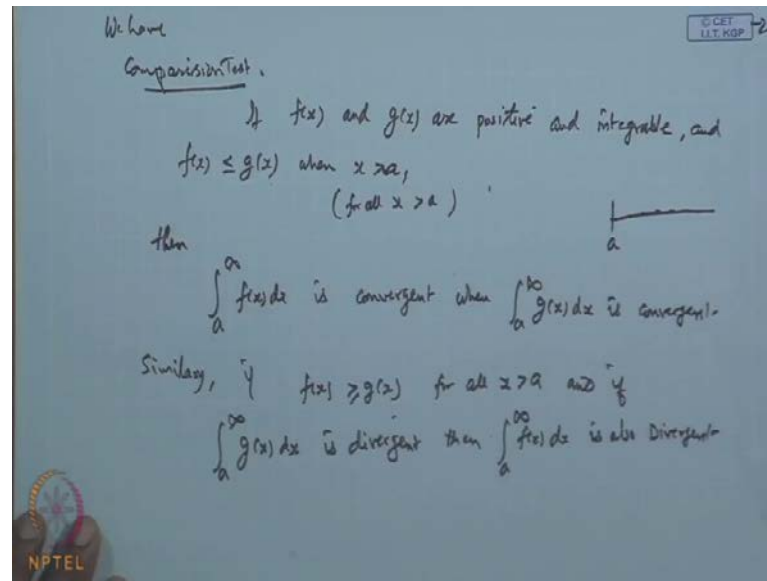 We have
© CET
I.I.T. KGP
Comparision Test.
If f(x) and g(x) are positive and integrable, and
f(x) ≤ g(x) when x > a,
(for all x > a)
a
then
∫_a^∞ f(x) dx is convergent when ∫_a^∞ g(x) dx is convergent.
Similary, if f(x) ≥ g(x) for all x > a and if
∫_a^∞ g(x) dx is divergent then ∫_a^∞ f(x) dx is also Divergent
NPTEL